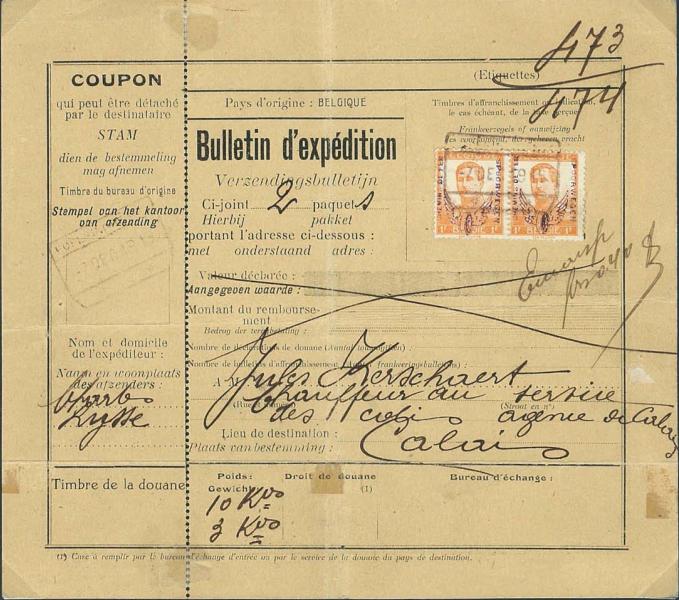 473
474
(Etiquettes)
COUPON
qui peut être détaché
par le destinataire
STAM
dien de bestemmeling
mag afnemen
Timbre du bureau d'origine
Stempel van het kantoor
van afzending
Nom et domicile
de l'expéditeur :
Naam en woonplaats
des afzenders :
Timbre de la douane
Pays d'origine : BELGIQUE
Bulletin d'expédition
Verzendingsbulletijn
Ci-joint 2 paquets
Hierbij pakket
portant l'adresse ci-dessous :
met onderstaand adres :
Timbres d'affranchissement ou indication,
le cas échéant, de la taxe perçue
Frankeerzegels of aanwijzing
CHEMIN DE FER SPOORWEGEN
CHEMIN DE FER SPOORWEGEN
1F BELGIE 1F
1F BELGIE 1F
Valeur déclarée :
Aangegeven waarde :
Montant du rembourse-
ment
Bedrag der terugbetaling :
Nombre de déclarations de douane
Nombre de bulletins d'affranchissement
Jules Kerschaert
Chauffeur au service
des colis agence de Calais
(Straat en nº)
Lieu de destination :
Plaats van bestemming : Calais
Poids: Droit de douane Bureau d'échange :
Gewicht (1)
10 Kos
3 Kos
(1) Case à remplir par le bureau d'échange d'entrée ou par le service de la douane du pays de destination.